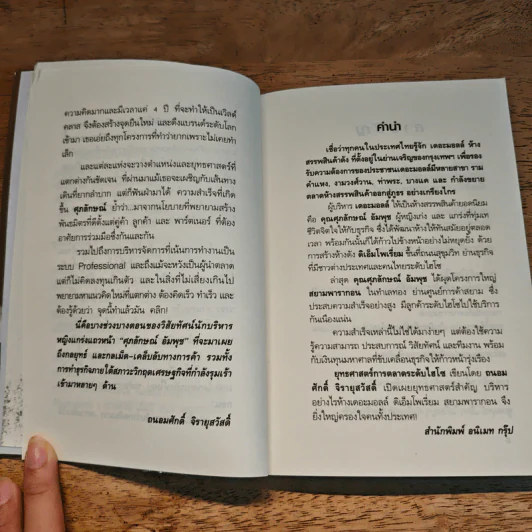 ความคิดมากและมีเวลาแค่ 4 ปี ที่จะทำให้เป็นเวิลด์
คลาส จึงต้องสร้างจุดยืนใหม่ และดึงแบรนด์ระดับโลก
เข้ามา เธอเอ่ยถึงทุกโครงการที่ทำว่ายากเพราะไม่เคยทำ
เล็ก
และแต่ละแห่งจะวางตำแหน่งและยุทธศาสตร์ที่
แตกต่างกันชัดเจน ที่ผ่านมาแม้เธอจะเผชิญกับเส้นทาง
เดินที่ยากลำบาก แต่ก็ฟันฝ่ามาได้ ความสำเร็จที่เกิด
ขึ้น ศุภลักษณ์ ย้ำว่า...มาจากนโยบายที่พยายามสร้าง
พันธมิตรที่ดีตั้งแต่คู่ค้า ลูกค้า และ พาร์ตเนอร์ ที่ต้อง
อาศัยการร่วมมือซึ่งกันและกัน
รวมไปถึงการบริหารจัดการที่เน้นการทำงานเป็น
ระบบ Professional และถึงแม้จะหวังเป็นผู้นำตลาด
แต่ก็ไม่คิดลงทุนเกินตัว และในสิ่งที่ไม่เสี่ยงเกินไป
พยายามหาแนวคิดใหม่ที่แตกต่าง ต้องคิดเร็ว ทำเร็ว และ
ต้องรู้ด้วยว่า จุดนี้ทำแล้วมัน คลิก!
นี่คือบางช่วงบางตอนของวิสัยทัศน์นักบริหาร
หญิงแกร่งแถวหน้า "ศุภลักษณ์ อัมพุช" ที่จะมาเผย
ถึงกลยุทธ์ และกลเม็ด-เคล็ดลับทางการค้า รวมทั้ง
การทำธุรกิจภายใต้สภาวะวิกฤตเศรษฐกิจที่กำลังรุมเร้า
เข้ามาหลายๆ ด้าน
ถนอมศักดิ์ จิรายุสวัสดิ์
คำนำ
เชื่อว่าทุกคนในประเทศไทยรู้จัก เดอะมอลล์ ห้าง
สรรพสินค้าดัง ที่ตั้งอยู่ในย่านเจริญของกรุงเทพฯ เพื่อรอง
รับความต้องการของประชาชนเดอะมอลล์มีหลายสาขา ราม
คำแหง, งามวงศ์วาน, ท่าพระ, บางแค และ กำลังขยาย
ตลาดห้างสรรพสินค้าออกสู่ภูธร อย่างเกรียงไกร
ผู้บริหาร เดอะมอลล์ ให้เป็นห้างสรรพสินค้ายอดนิยม
คือ คุณศุภลักษณ์ อัมพุช ผู้หญิงเก่ง และ แกร่งที่ทุ่มเท
ชีวิตจิตใจให้กับธุรกิจ ซึ่งได้พัฒนาห้างให้ทันสมัยอยู่ตลอด
เวลา พร้อมกันนั้นก็ได้ก้าวไปข้างหน้าอย่างไม่หยุดยั้ง ด้วย
การสร้างห้างดัง ดิเอ็มโพเรี่ยม ขึ้นที่ถนนสุขุมวิท ย่านธุรกิจ
ที่มีชาวต่างประเทศและคนไทยระดับไฮโซ
ล่าสุด คุณศุภลักษณ์ อัมพุช ได้ผุดโครงการใหญ่
สยามพารากอน ในทำเลทอง ย่านศูนย์การค้าสยาม ซึ่ง
ประสบความสำเร็จอย่างสูง มีลูกค้าระดับไฮโซไปใช้บริการ
กันเนืองแน่น
ความสำเร็จเหล่านี้ไม่ใช่ได้มาง่ายๆ แต่ต้องใช้ความ
รู้ความสามารถ ประสบการณ์ วิสัยทัศน์ และทีมงาน พร้อม
กับเงินทุนมหาศาลที่ขับเคลื่อนธุรกิจให้ก้าวหน้ารุ่งเรือง
ยุทธศาสตร์การตลาดระดับไฮโซ เขียนโดย ถนอม
ศักดิ์ จิรายุสวัสดิ์ เปิดเผยยุทธศาสตร์สำคัญ บริหาร
อย่างไรห้างเดอะมอลล์ ดิเอ็มโพเรี่ยม สยามพารากอน จึง
ยิ่งใหญ่ครองใจคนทั้งประเทศ!
สำนักพิมพ์ อนิเมท กรุ๊ป